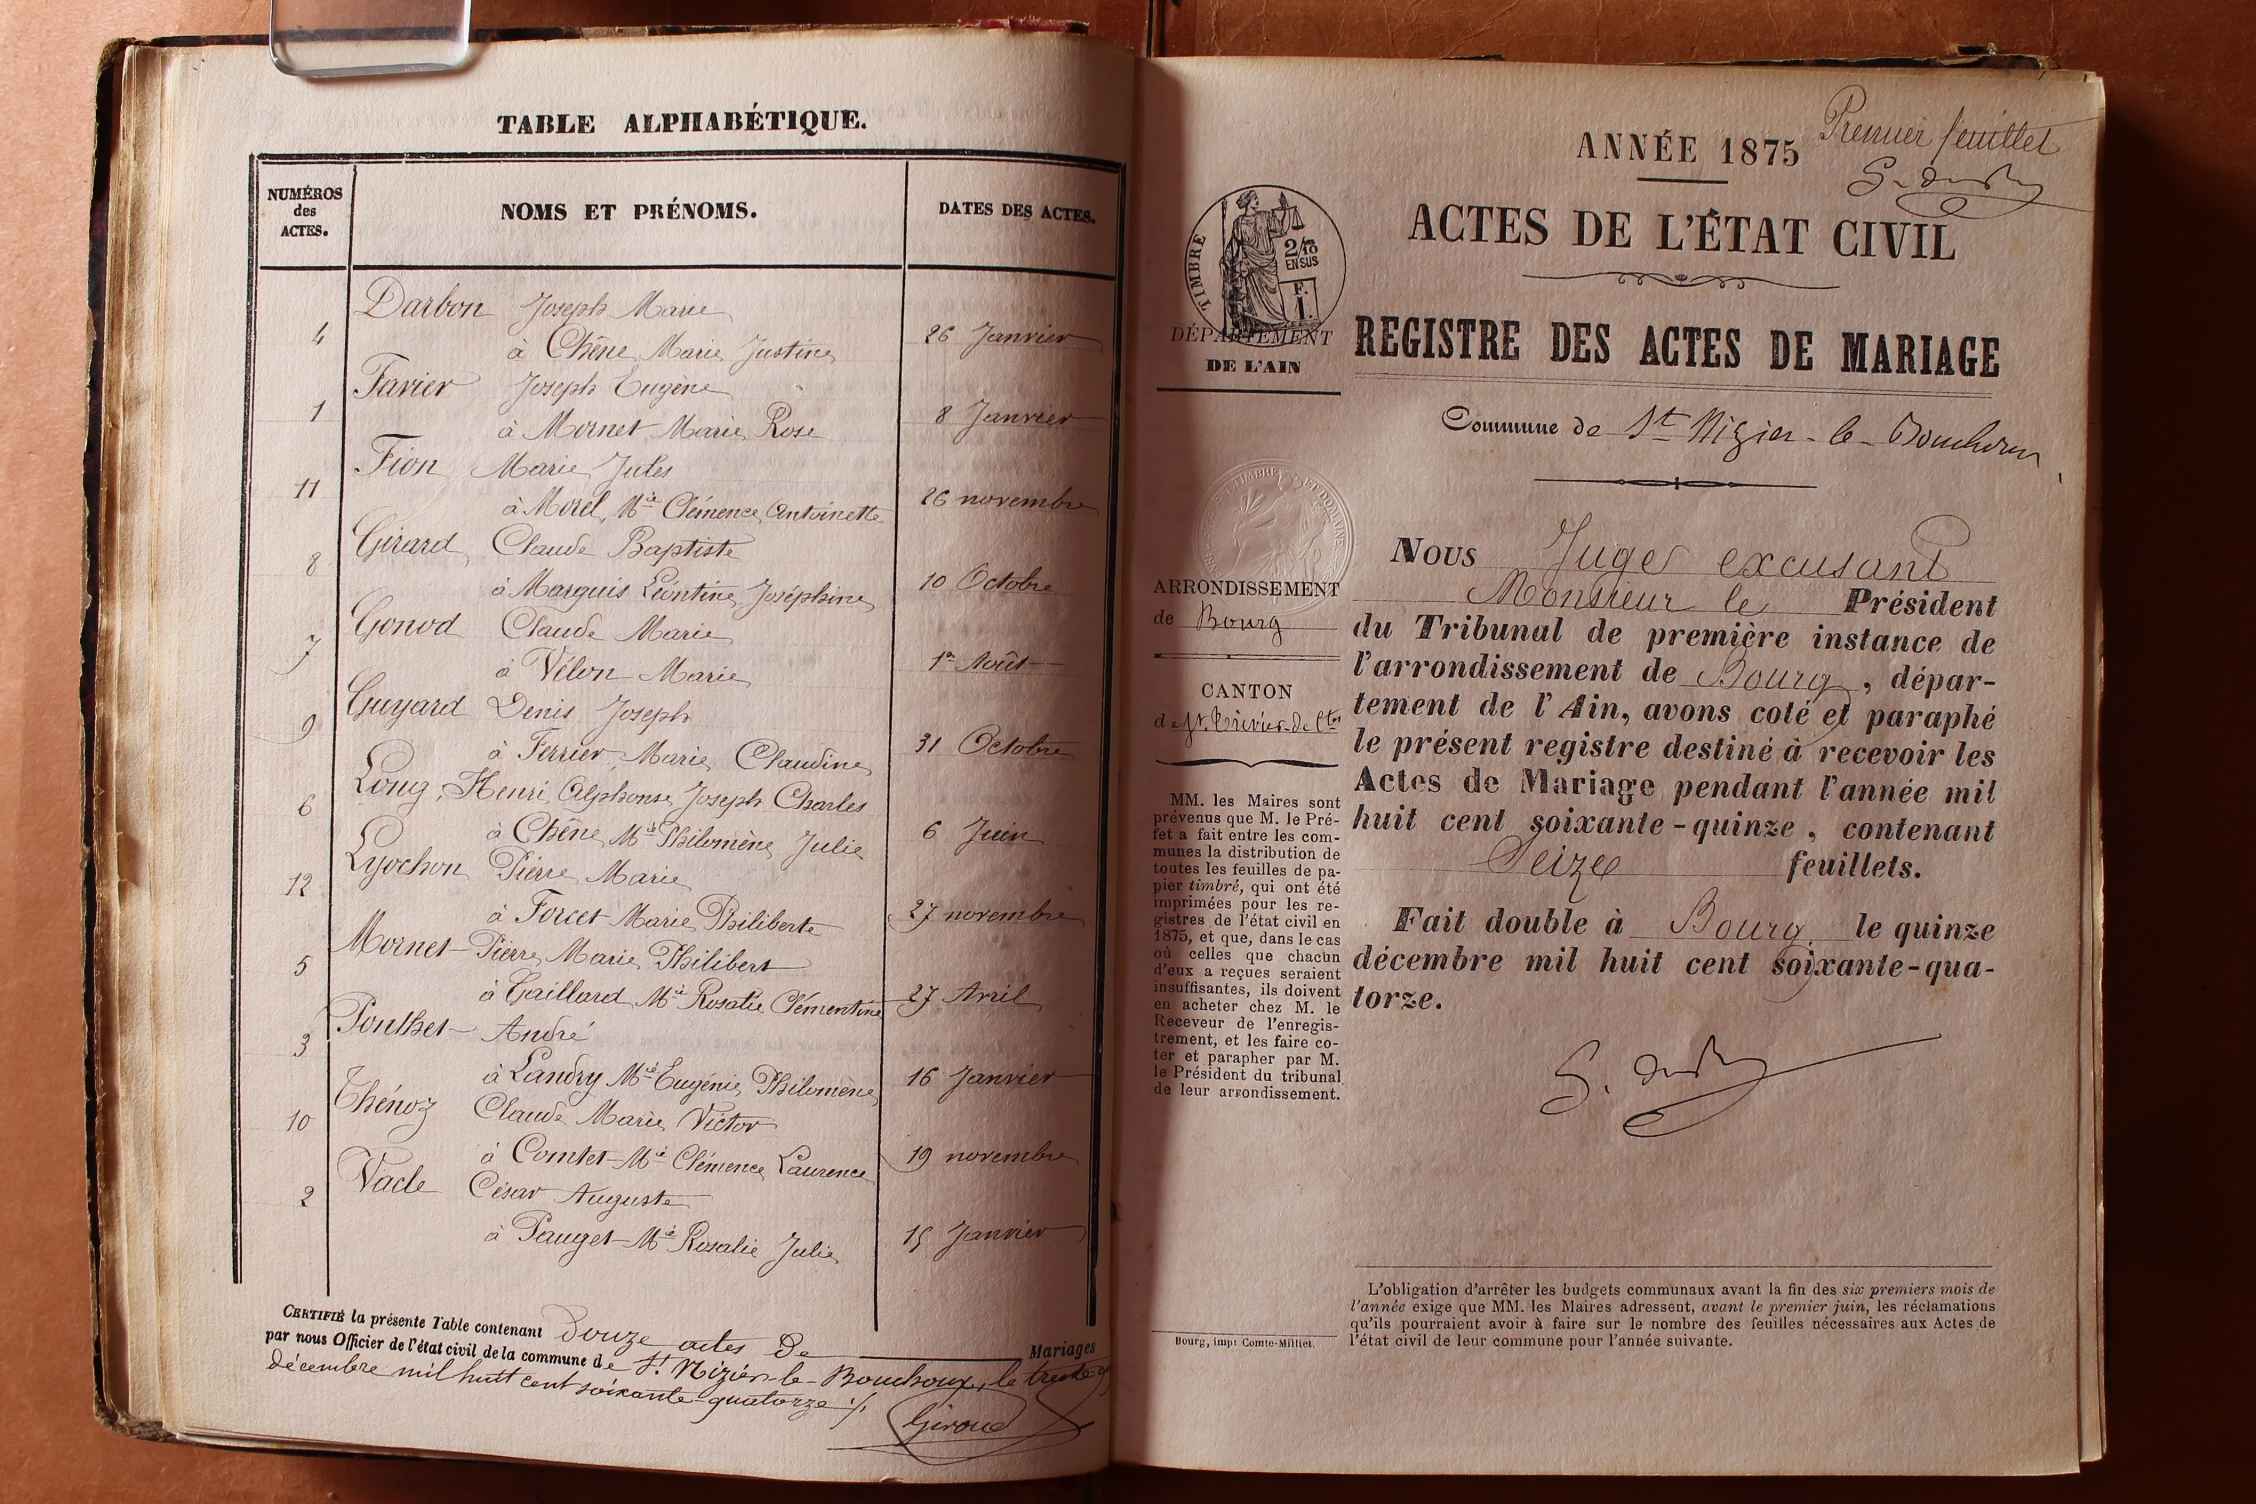 TABLE ALPHABÉTIQUE.
NUMÉROS
des
ACTES.
NOMS ET PRÉNOMS.
DATES DES ACTES.
Darbon Joseph Marie
4 à Chêne, Marie Justine 26 Janvier
Favier Joseph Eugène
1 à Mornet Marie Rose 8 Janvier
Fion Marie Jules
11 à Morel, Mie Clémence Antoinette 26 novembre
Girard Claude Baptiste
8 à Marquis Léontine Joséphine 10 Octobre
Gonod Claude Marie
7 à Vélon Marie 1er Août
Guyard Denis Joseph
9 à Ferrier, Marie Claudine 31 Octobre
Long, Henri Alphonse Joseph Charles
6 à Chêne, Mie Philomène Julie 6 Juin
Lyochon Pierre Marie
12 à Forcet Marie Philiberte 27 novembre
Mornet Pierre Marie Philibert
5 à Gaillard Mie Rosalie Clémentine 27 Avril
Ponthet André
3 à Landry Mie Eugénie Philomène 16 Janvier
Thénoz Claude Marie Victor
10 à Comtet Mie Clémence Laurence 19 novembre
Vacle César Auguste
2 à Pauget Mie Rosalie Julie 15 Janvier
CERTIFIÉ la présente Table contenant Douze actes de Mariages
par nous Officier de l'état civil de la commune de St Nizier-le-Bouchoux, le trente
décembre mil huit cent soixante-quatorze ./.
Giroud
Premier feuillet
ANNÉE 1875
ACTES DE L'ÉTAT CIVIL
TIMBRE
2/10
EN SUS
F.
1.
DÉPARTEMENT
DE L'AIN
REGISTRE DES ACTES DE MARIAGE
Commune de St Nizier-le-Bouchoux
ARRONDISSEMENT
de Bourg
CANTON
de St. Trivier-de-Ctes
MM. les Maires sont
prévenus que M. le Pré-
fet a fait entre les com-
munes la distribution de
toutes les feuilles de pa-
pier timbré, qui ont été
imprimées pour les re-
gistres de l'état civil en
1875, et que, dans le cas
où celles que chacun
d'eux a reçues seraient
insuffisantes, ils doivent
en acheter chez M. le
Receveur de l'enregis-
trement, et les faire co-
ter et parapher par M.
le Président du tribunal
de leur arrondissement.
Bourg, imp: Comte-Milliet.
NOUS Juge excusant
Monsieur le Président
du Tribunal de première instance de
l'arrondissement de Bourg, dépar-
tement de l'Ain, avons coté et paraphé
le présent registre destiné à recevoir les
Actes de Mariage pendant l'année mil
huit cent soixante-quinze, contenant
Seize feuillets.
Fait double à Bourg le quinze
décembre mil huit cent soixante-qua-
torze.
L'obligation d'arrêter les budgets communaux avant la fin des six premiers mois de
l'année exige que MM. les Maires adressent, avant le premier juin, les réclamations
qu'ils pourraient avoir à faire sur le nombre des feuilles nécessaires aux Actes de
l'état civil de leur commune pour l'année suivante.